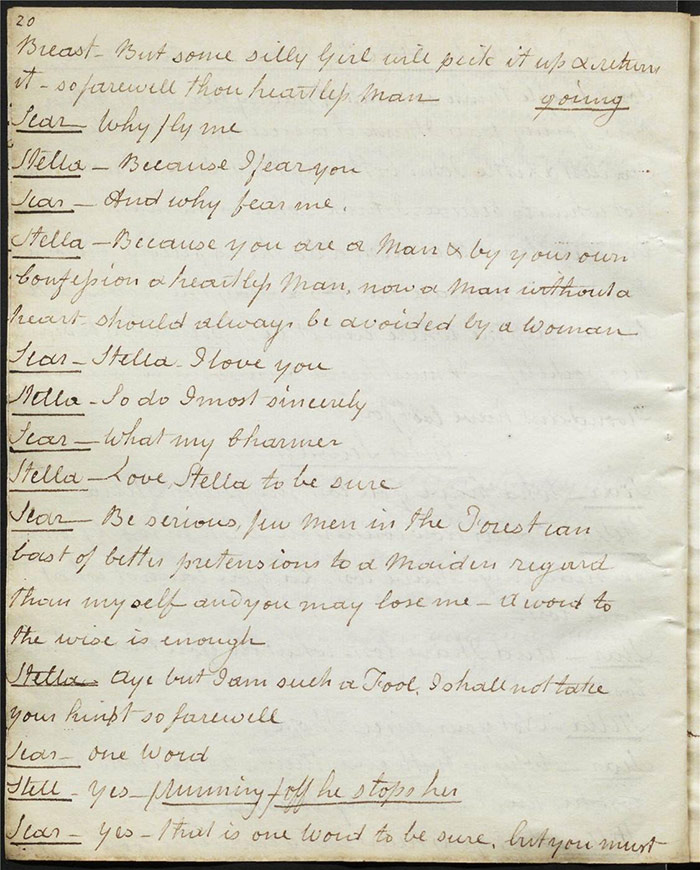 20
Breast - But some silly Girl will pick it up & return
it - so farewell thou heartless Man going
Sear - Why fly me
Stella - Because I fear you
Sear - And why fear me.
Stella - Because you are a Man & by your own
Confession a heartless Man, now a Man without a
heart should always be avoided by a Woman
Sear - Stella - I love you
Stella - So do I most sincerely
Sear - What my Charmer
Stella - Love Stella to be sure
Sear - Be serious, few men in the Forest can
bast of better pretensions to a Maidens regard
than myself and you may lose me - a word to
the wise is enough
Stella - Aye but I am such a Fool, I shall not take
your hint so farewell
Sear - one Word
Stell - yes - / Running / off he stops her
Sear - yes - that is one Word to be sure, but you must